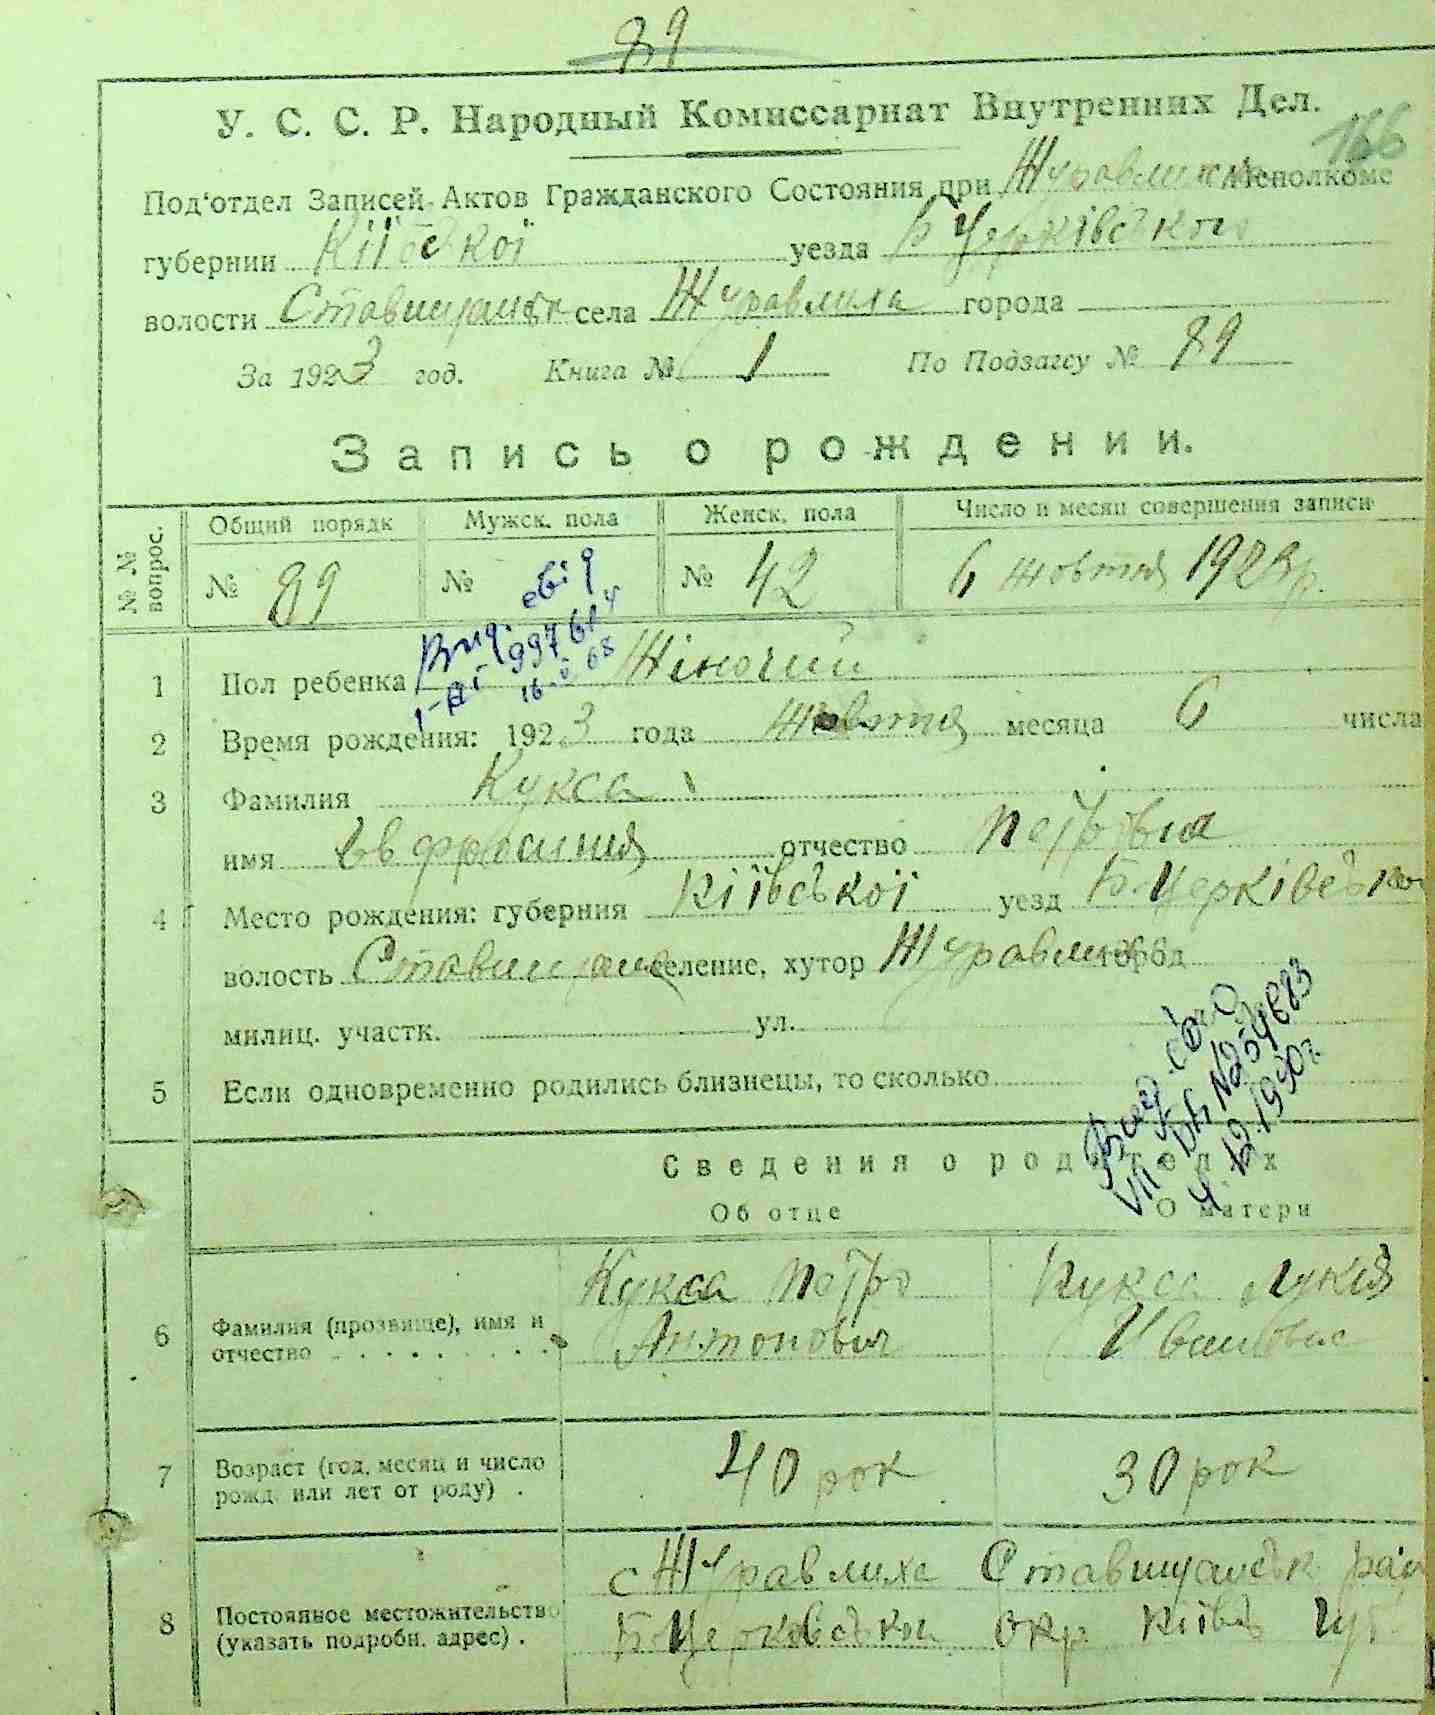 89
166
У. С. С. Р. Народный Комиссариат Внутренних Дел.
Под'отдел Записей Актов Гражданского Состояния при Исполкоме
губернии Київської уезда Б Церківського
волости Ставищанск села Журавлиха города
За 1923 год. Книга № 1 По Подзагсу № 89
Запись о рождении.
№№ вопрос. Общий порядк Мужск. пола Женск. пола Число и месяц совершения записи
№ 89 № № 42 6 жовтня 1923 р.
1 Пол ребенка Жіночий
2 Время рождения: 1923 года Жовтня месяца 6 числа
3 Фамилия Кукса
имя Евфросиния отчество Петровна
4 Место рождения: губерния Київської уезд Б Церківсько
волость селение, хутор Журавлиха город
милиц. участк. ул.
5 Если одновременно родились близнецы, то сколько
Сведения о родителях
Об отце О матери
Кукса Петро Кукса Лукія
6 Фамилия (прозвище), имя и отчество Антонович Івановна
7 Возраст (год, месяц и число рожд. или лет от роду) 40 рок 30 рок
с Журавлиха Ставищанськ рай
8 Постоянное местожительство (указать подробн. адрес) Б Церковськи окр Київ Губ